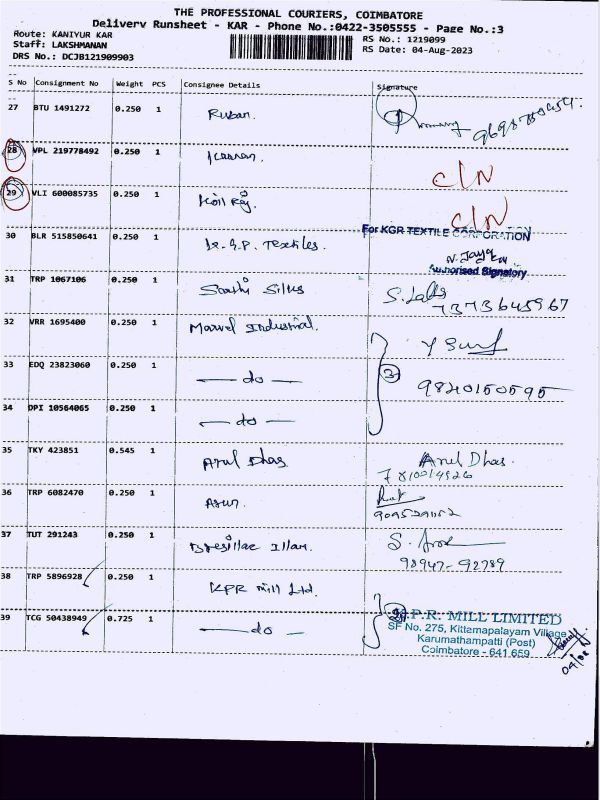 THE PROFESSIONAL COURIERS, COIMBATORE
Delivery Runsheet - KAR - Phone No.:0422-3505555 - Page No.:3
Route: KANIYUR KAR
RS No.: 1219099
Staff: LAKSHMANAN
RS Date: 04-Aug-2023
DRS No.: DCJB121909903
S No Consignment No Weight PCS Consignee Details Signature
27 BTU 1491272 0.250 1 Ruban.
28 VPL 219778492 0.250 1 C/N
29 VLI 600085735 0.250 1 C/N
For KGR TEXTILE CORPORATION
30 BLR 515850641 0.250 1 Textiles.
Authorised Signatory
31 TRP 1067106 0.250 1 S.
7373645967
32 VRR 1695400 0.250 1 Marvel Industrial.
33 EDQ 23823060 0.250 1 — do — 3
9840150595
34 DPI 10564065 0.250 1 — do —
35 TKY 423851 0.545 1 Arul Dhas Arul Dhas.
36 TRP 6082470 0.250 1
37 TUT 291243 0.250 1 Illam. S.
98947-92789
38 TRP 5896928 0.250 1 KPR Mill Ltd.
39 TCG 50438949 0.725 1 — do — P.R. MILL LIMITED
SF No. 275, Kittampalayam Village
Karumathampatti (Post)
Coimbatore - 641 659
04/08